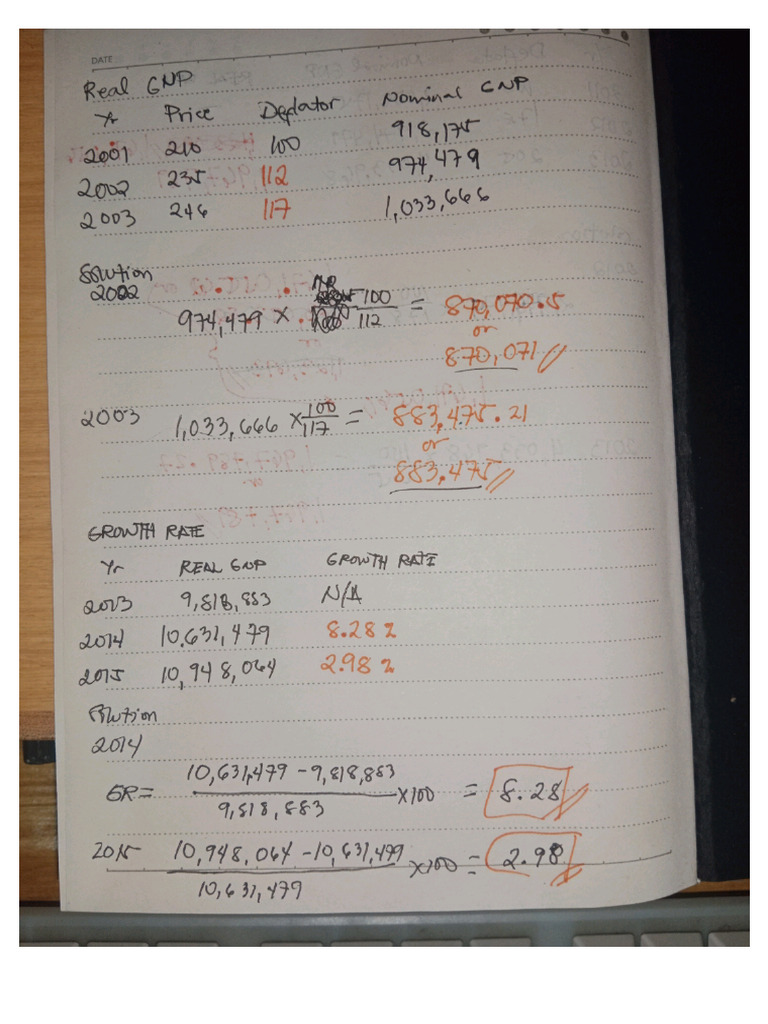 DATE
Real GNP
Yr Price Deflator Nominal GNP
2001 210 100 918,175
2002 235 112 974,479
2003 246 117 1,033,666
Solution
2002
974,479 x 100/112 = 870,070.5
or
870,071
2003 1,033,666 x 100/117 = 883,475.21
or
883,475
GROWTH RATE
Yr REAL GNP GROWTH RATE
2013 9,818,883 N/A
2014 10,631,479 8.28%
2015 10,948,064 2.98%
Solution
2014
GR = 10,631,479 - 9,818,883 / 9,818,883 x100 = 8.28
2015 10,948,064 - 10,631,479 / 10,631,479 x100 = 2.98